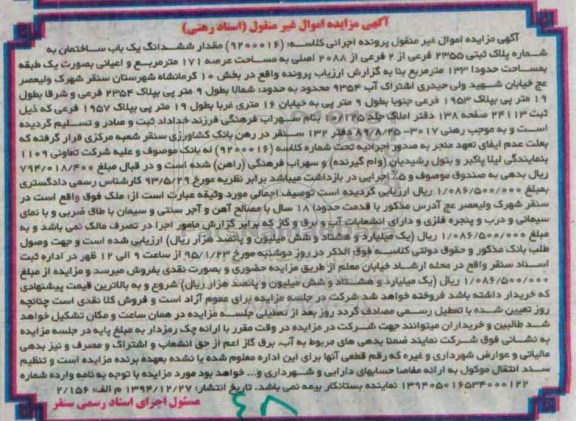 آگهی مزایده اموال غیر منقول (اسناد رهنی)
آگهی مزایده اموال غیر منقول پرونده اجرائی کلاسه: (۹۲۰۰۰۱۶) مقدار ششدانگ یک باب ساختمان به
شماره پلاک ثبتی ۲۳۵۵ فرعی از ۲ فرعی از ۲۰۸۸ اصلی به مساحت عرصه ۱۷۱ مترمربع و اعیانی بصورت یک طبقه
بمساحت حدودا ۱۳۳ مترمربع بنا به گزارش ارزیاب پرونده واقع در بخش ۱۰ کرمانشاه شهرستان سنقر شهرک ولیعصر
عج خیابان شهید ولی حیدری اشتراک آب ۹۳۵۴ محدود به حدود: شمالا بطول ۹ متر پی بپلاک ۲۳۵۴ فرعی و شرقا بطول
۱۹ متر پی بپلاک ۱۹۵۳ فرعی جنوبا بطول ۹ متر پی به خیابان ۱۶ متری غربا بطول ۱۹ متر پی بپلاک ۱۹۵۷ فرعی که ذیل
ثبت ۲۴۱۱۳ صفحه ۱۳۸ دفتر املاک جلد ۱۰/۱۲۵ بنام سهراب فرهنگی فرزند خداداد ثبت و صادر و تسلیم گردیده
است و به موجب رهنی ۳۰۱۷-۸۹/۸/۲۵ دفتر ۱۳۲ سنقر در رهن بانک کشاورزی سنقر شعبه مرکزی قرار گرفته که
بعلت عدم ایفای تعهد منجر به صدور اجرائیه تحت شماره کلاسه (۹۲۰۰۰۱۶) له بانک موصوف و علیه شرکت تعاونی ۱۱۰۹
بنمایندگی لیلا پاکبر و بتول رشیدیان (وام گیرنده) و سهراب فرهنگی (راهن) شده است و در قبال مبلغ ۷۹۴/۰۱۸/۴۰۰
ریال بدهی به صندوق موصوف و ۵٪ اجرایی در بازداشت میباشد برابر نظریه مورخ ۹۳/۵/۲۹ کارشناس رسمی دادگستری
بمبلغ ۱/۰۸۶/۵۰۰/۰۰۰ ریال ارزیابی گردیده است توصیف اجمالی مورد وثیقه عبارت است از: ملک فوق واقع است در
سنقر شهرک ولیعصر عج آدرس مذکور با قدمت حدودا ۱۸ سال با مصالح آهن و آجر سنتی و سیمان با طاق ضربی و با نمای
سیمانی و درب و پنجره فلزی و دارای انشعابات آب و برق و گاز که برابر گزارش مامور اجرا در تصرف مالک نمی باشد و به
مبلغ ۱/۰۸۶/۵۰۰/۰۰۰ ریال (یک میلیارد و هشتاد و شش میلیون و پانصد هزار ریال) ارزیابی شده است و جهت وصول
طلب بانک مذکور و حقوق دولتی کلاسه فوق الذکر در روز دوشنبه مورخ ۹۵/۱/۲۳ از ساعت ۹ الی ۱۲ ظهر در اداره ثبت
اسناد سنقر واقع در محله ارشاد خیابان معلم از طریق مزایده حضوری و بصورت نقدی بفروش میرسد و مزایده از مبلغ
۱/۰۸۶/۵۰۰/۰۰۰ ریال (یک میلیارد و هشتاد و شش میلیون و پانصد هزار ریال) شروع و به بالاترین قیمت پیشنهادی
که خریدار داشته باشد فروخته خواهد شد شرکت در جلسه مزایده برای عموم آزاد است و فروش کلا نقدی است چنانچه
روز تعیین شده با تعطیل رسمی مصادف گردد روز بعد از تعطیلی جلسه مزایده در همان ساعت و مکان تشکیل خواهد
شد طالبین و خریداران میتوانند جهت شرکت در مزایده در وقت مقرر با ارائه چک رمزدار به مبلغ پایه در جلسه مزایده
به نشانی فوق شرکت نمایند ضمنا بدهی های مربوط به آب، برق گاز اعم از حق انشعاب و اشتراک و مصرف و نیز بدهی
مالیاتی و عوارض شهرداری و غیره که رقم قطعی آنها برای این اداره معلوم شده یا نشده بعهده برنده مزایده است و تنظیم
سند انتقال موکول به ارائه مفاصا حسابهای دارایی و شهرداری و... خواهد بود مورد مزایده با توجه به نامه وارده شماره
۱۳۹۴۰۵۰۱۶۵۳۴۰۰۰۱۲۲ نماینده بستانکار بیمه نمی باشد. تاریخ انتشار: ۱۳۹۴/۱۲/۲۷ م الف: ۲/۱۵۶
مسئول اجرای اسناد رسمی سنقر